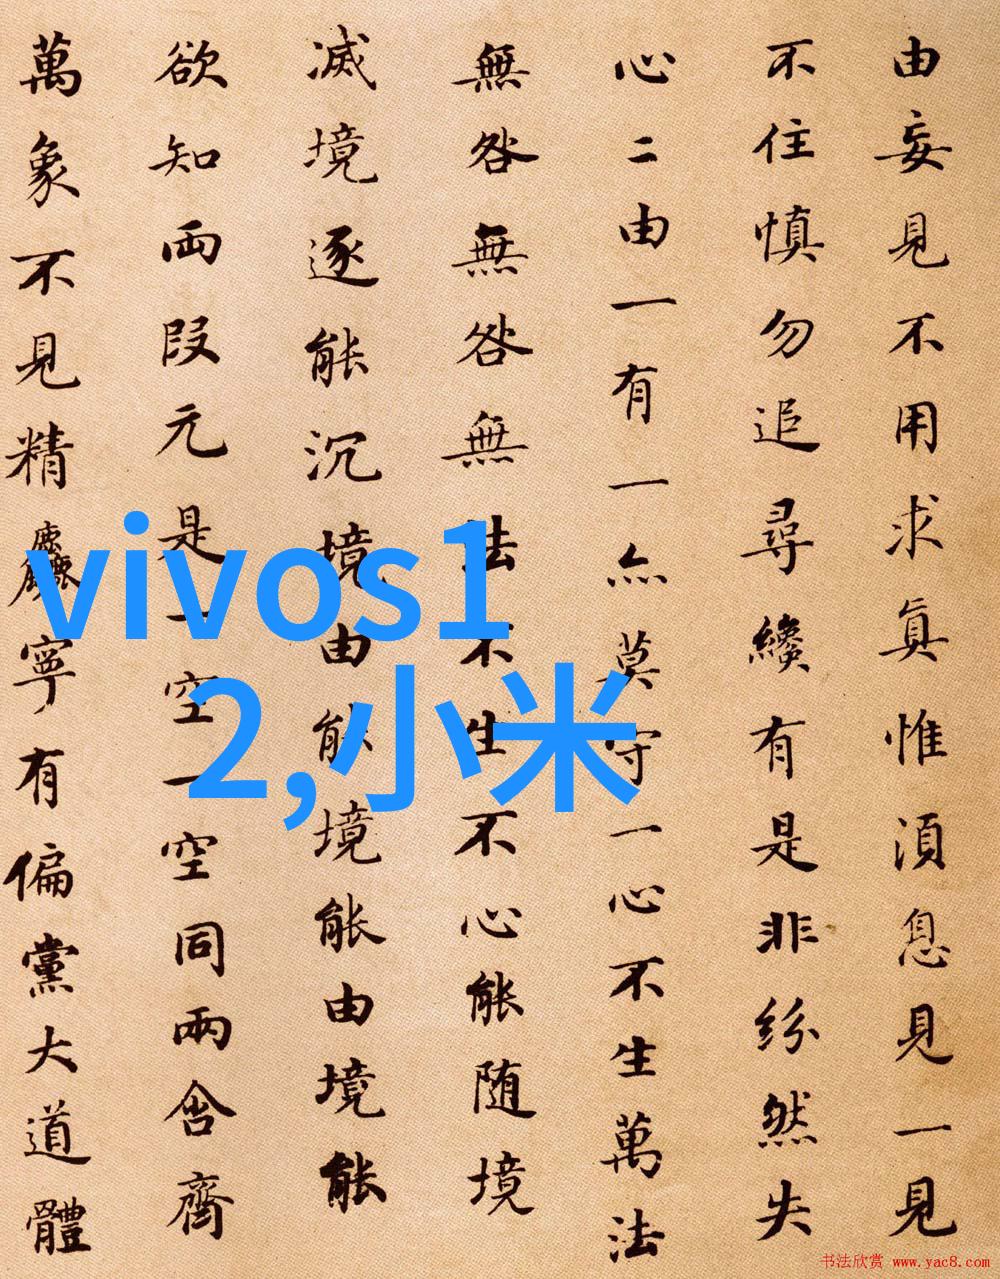 由妄見不用求眞惟湏息見一見
不住慎勿追尋纔有是非紛然失
心二由一有一亦莫守一心不生萬法
無咎無咎無法不生不心能随境
滅境逐能沉境由能境能由境能
欲知兩段元是一空一空同兩含齊
萬象不見精麤寧有偏黨大道體
vivos1
2,小米
书法欣赏 www.yac8.com